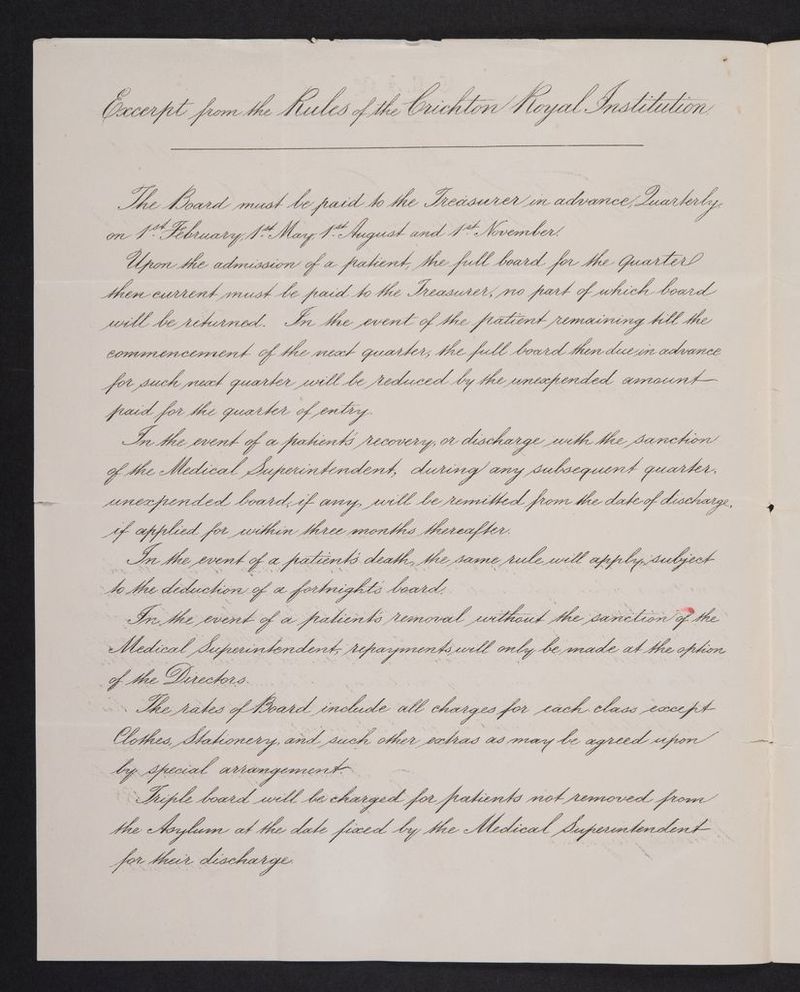 Excerpt from the Rules of the Crichton Royal Institution
The Board must be paid to the Treasurer in advance, Quarterly,
on 1st February, 1st May, 1st August and 1st November.
Upon the admission of a patient, the full board for the Quarter
then current must be paid to the Treasurer, no part of which board
will be returned. In the event of the patient remaining till the
commencement of the next quarter, the full board then due in advance
for such next quarter will be reduced by the unexpended amount
paid for the quarter of entry.
In the event of a patient's recovery, or discharge with the sanction
of the Medical Superintendent, during any subsequent quarter,
unexpended board, if any, will be remitted from the date of discharge,
if applied for within three months thereafter.
In the event of a patient's death, the same rule will apply, subject
to the deduction of a fortnight's board.
In the event of a patient's removal without the sanction of the
Medical Superintendent, repayments will only be made at the option
of the Directors.
The rates of Board include all charges for each class except
Clothes, Stationery, and such other extras as may be agreed upon
by special arrangement.
Triple board will be charged for patients not removed from
the Asylum at the date fixed by the Medical Superintendent
for their discharge.